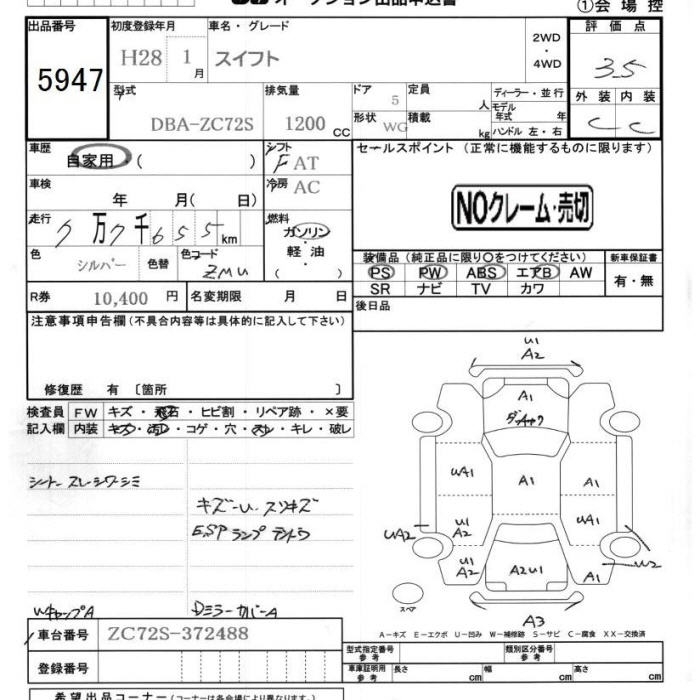 ①会 場 控
出品番号 初度登録年月 車名・グレード 2WD・4WD 評 価 点
5947 H28 1月 スイフト 3.5
型式 排気量 ドア 定員 ディーラー・並行 外 装 内 装
DBA-ZC72S 1200CC 5 人 モデル年式 年 C C
形状 WG 積載 kg ハンドル 左・右
車歴 自家用・( ) シフト FAT セールスポイント (正常に機能するものに限ります)
車検 年 月( 日) 冷房 AC
NOクレーム・売切
走行 7万7千655km 燃料 ガソリン・軽油( )
色 シルバー 色替 色コード ZMU
装備品 (純正品に限り○をつけてください) 新車保証書
PS PW ABS エアB AW 有・無
SR ナビ TV カワ
R券 10,400 円 名変期限 月 日
後日品
注意事項申告欄 (不具合内容等は具体的に記入して下さい)
修復歴 有 〔箇所 〕
検査員記入欄 FW キズ・飛石・ヒビ割・リペア跡・×要
内装 キズ・汚レ・コゲ・穴・スレ・キレ・破レ
シート スレ シワ シミ
キズ-U、スリキズ
ESPランプテントウ
WキャップA
DミラーカバーA
U1
A2
A1
UA1 A1 A1
UA2 U1 A2 UA1
U1 A2 A2U1 A1 W2
スペア
A3
A-キズ E-エクボ U-凹み W-補修跡 S-サビ C-腐食 XX-交換済
車台番号 ZC72S-372488
登録番号
型式指定番号 参考 類別区分番号 参考
車庫証明用 参考 長さ cm 幅 cm 高さ cm
希望出品コーナー (コーナーは各会場により異なります。)